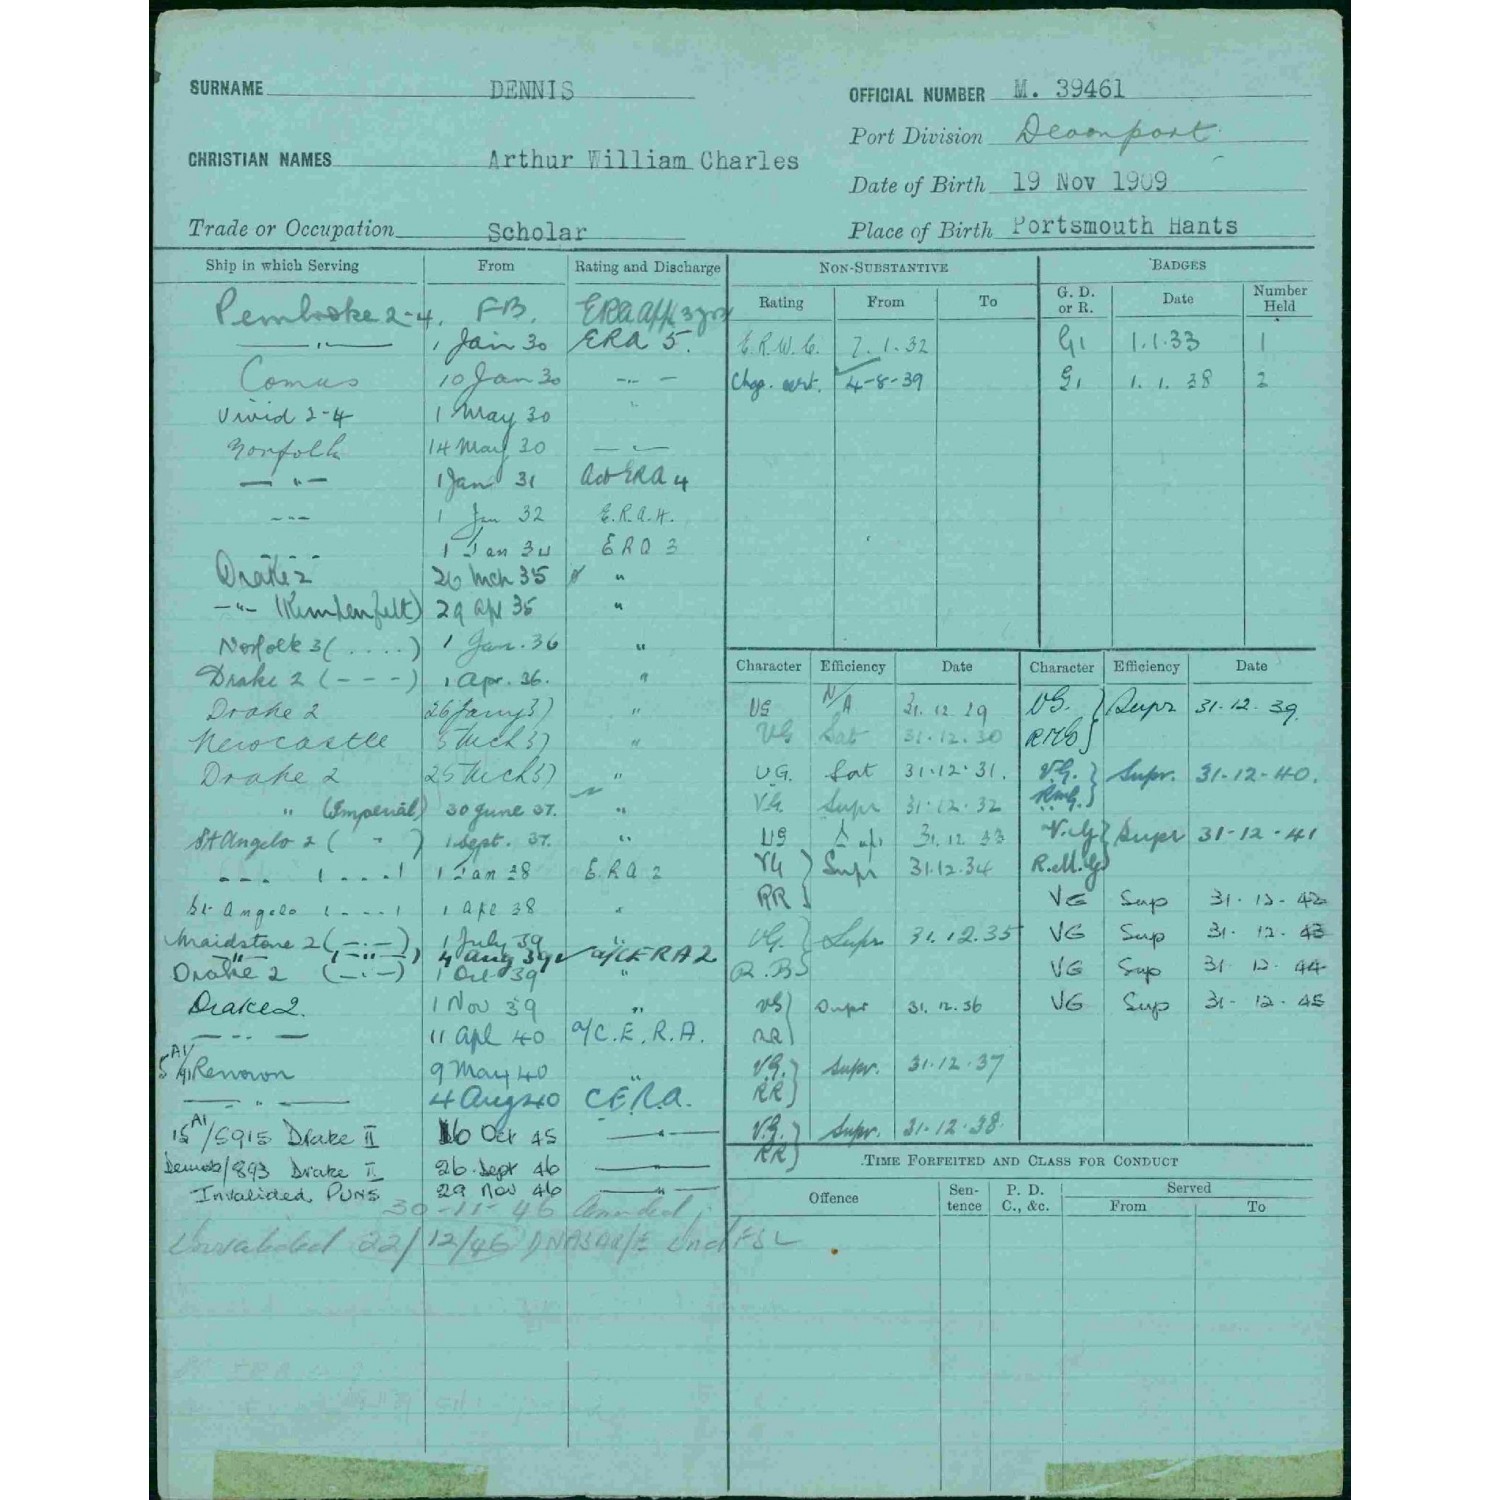 SURNAME DENNIS
OFFICIAL NUMBER M. 39461
Port Division Devonport
CHRISTIAN NAMES Arthur William Charles
Date of Birth 19 Nov 1909
Trade or Occupation Scholar
Place of Birth Portsmouth Hants
Ship in which Serving From Rating and Discharge
Pembroke 2-4. FB. ERA App. 3 yrs
—"— 1 Jan 30 ERA 5.
Comus 10 Jan 30 -..-
Vivid 2-4 1 May 30 "
Norfolk 14 May 30 —"—
—"— 1 Jan 31 Act ERA 4
--- 1 Jan 32 E.R.A.4.
- - - 1 Jan 34 ERA 3
Drake 2 26 Mch 35 "
-"- (Kempenfelt) 29 Apl 35 "
Norfolk 3 (....) 1 Jan. 36 "
Drake 2 (---) 1 Apr. 36. "
Drake 2 26 Jany 37 "
Newcastle 5 Mch 37 "
Drake 2 25 Mch 37 "
" (Imperial) 30 June 37. "
St Angelo 2 ( " ) 1 Sept. 37. "
--- (....) 1 Jan 38 E.R.A 2
St Angelo (---) 1 Apl 38 "
Maidstone 2 (-.-) 1 July 39 "
" (-"-) 4 Aug 39 a/CERA 2
Drake 2 (-.-) 1 Oct 39 "
Drake 2. 1 Nov 39 "
-..- 11 Apl 40 a/C.E.R.A.
Renown 9 May 40 "
—"— 4 Aug 40 C.E.R.A.
15 A1/5915 Drake II 16 Oct 45 —"—
Demob/893 Drake II 26. Sept 46 —"—
Invalided PUNS 29 Nov 46 —"—
30-11-46 Amended
Invalided 22/12/46
NON-SUBSTANTIVE
Rating From To
E.R.W.C. 7.1.32
Chge. cert. 4-8-39
BADGES
G. D. or R. Date Number Held
G1 1.1.33 1
G1 1.1.38 2
Character Efficiency Date
VG N/A 31.12.29
VG Sat 31.12.30
VG. Sat 31.12.31.
VG. Supr 31.12.32
VG Supr 31.12.33
VG RR Supr 31.12.34
VG. R.B Supr 31.12.35
VG RR Supr 31.12.36
V.G. RR Supr. 31.12.37
V.G. RR Supr. 31.12.38.
Character Efficiency Date
VG. RMG Supr 31.12.39.
V.G. RMG. Supr. 31-12-40.
V.G R.M.G Supr 31-12-41
VG Sup 31-12-42
VG Sup 31-12-43
VG Sup 31 12 44
VG Sup 31-12-45
TIME FORFEITED AND CLASS FOR CONDUCT
Offence Sentence P. D. C., &c. Served From To